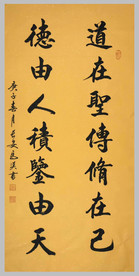 道在聖傳脩在己
德由人積鑒由天
庚子春月